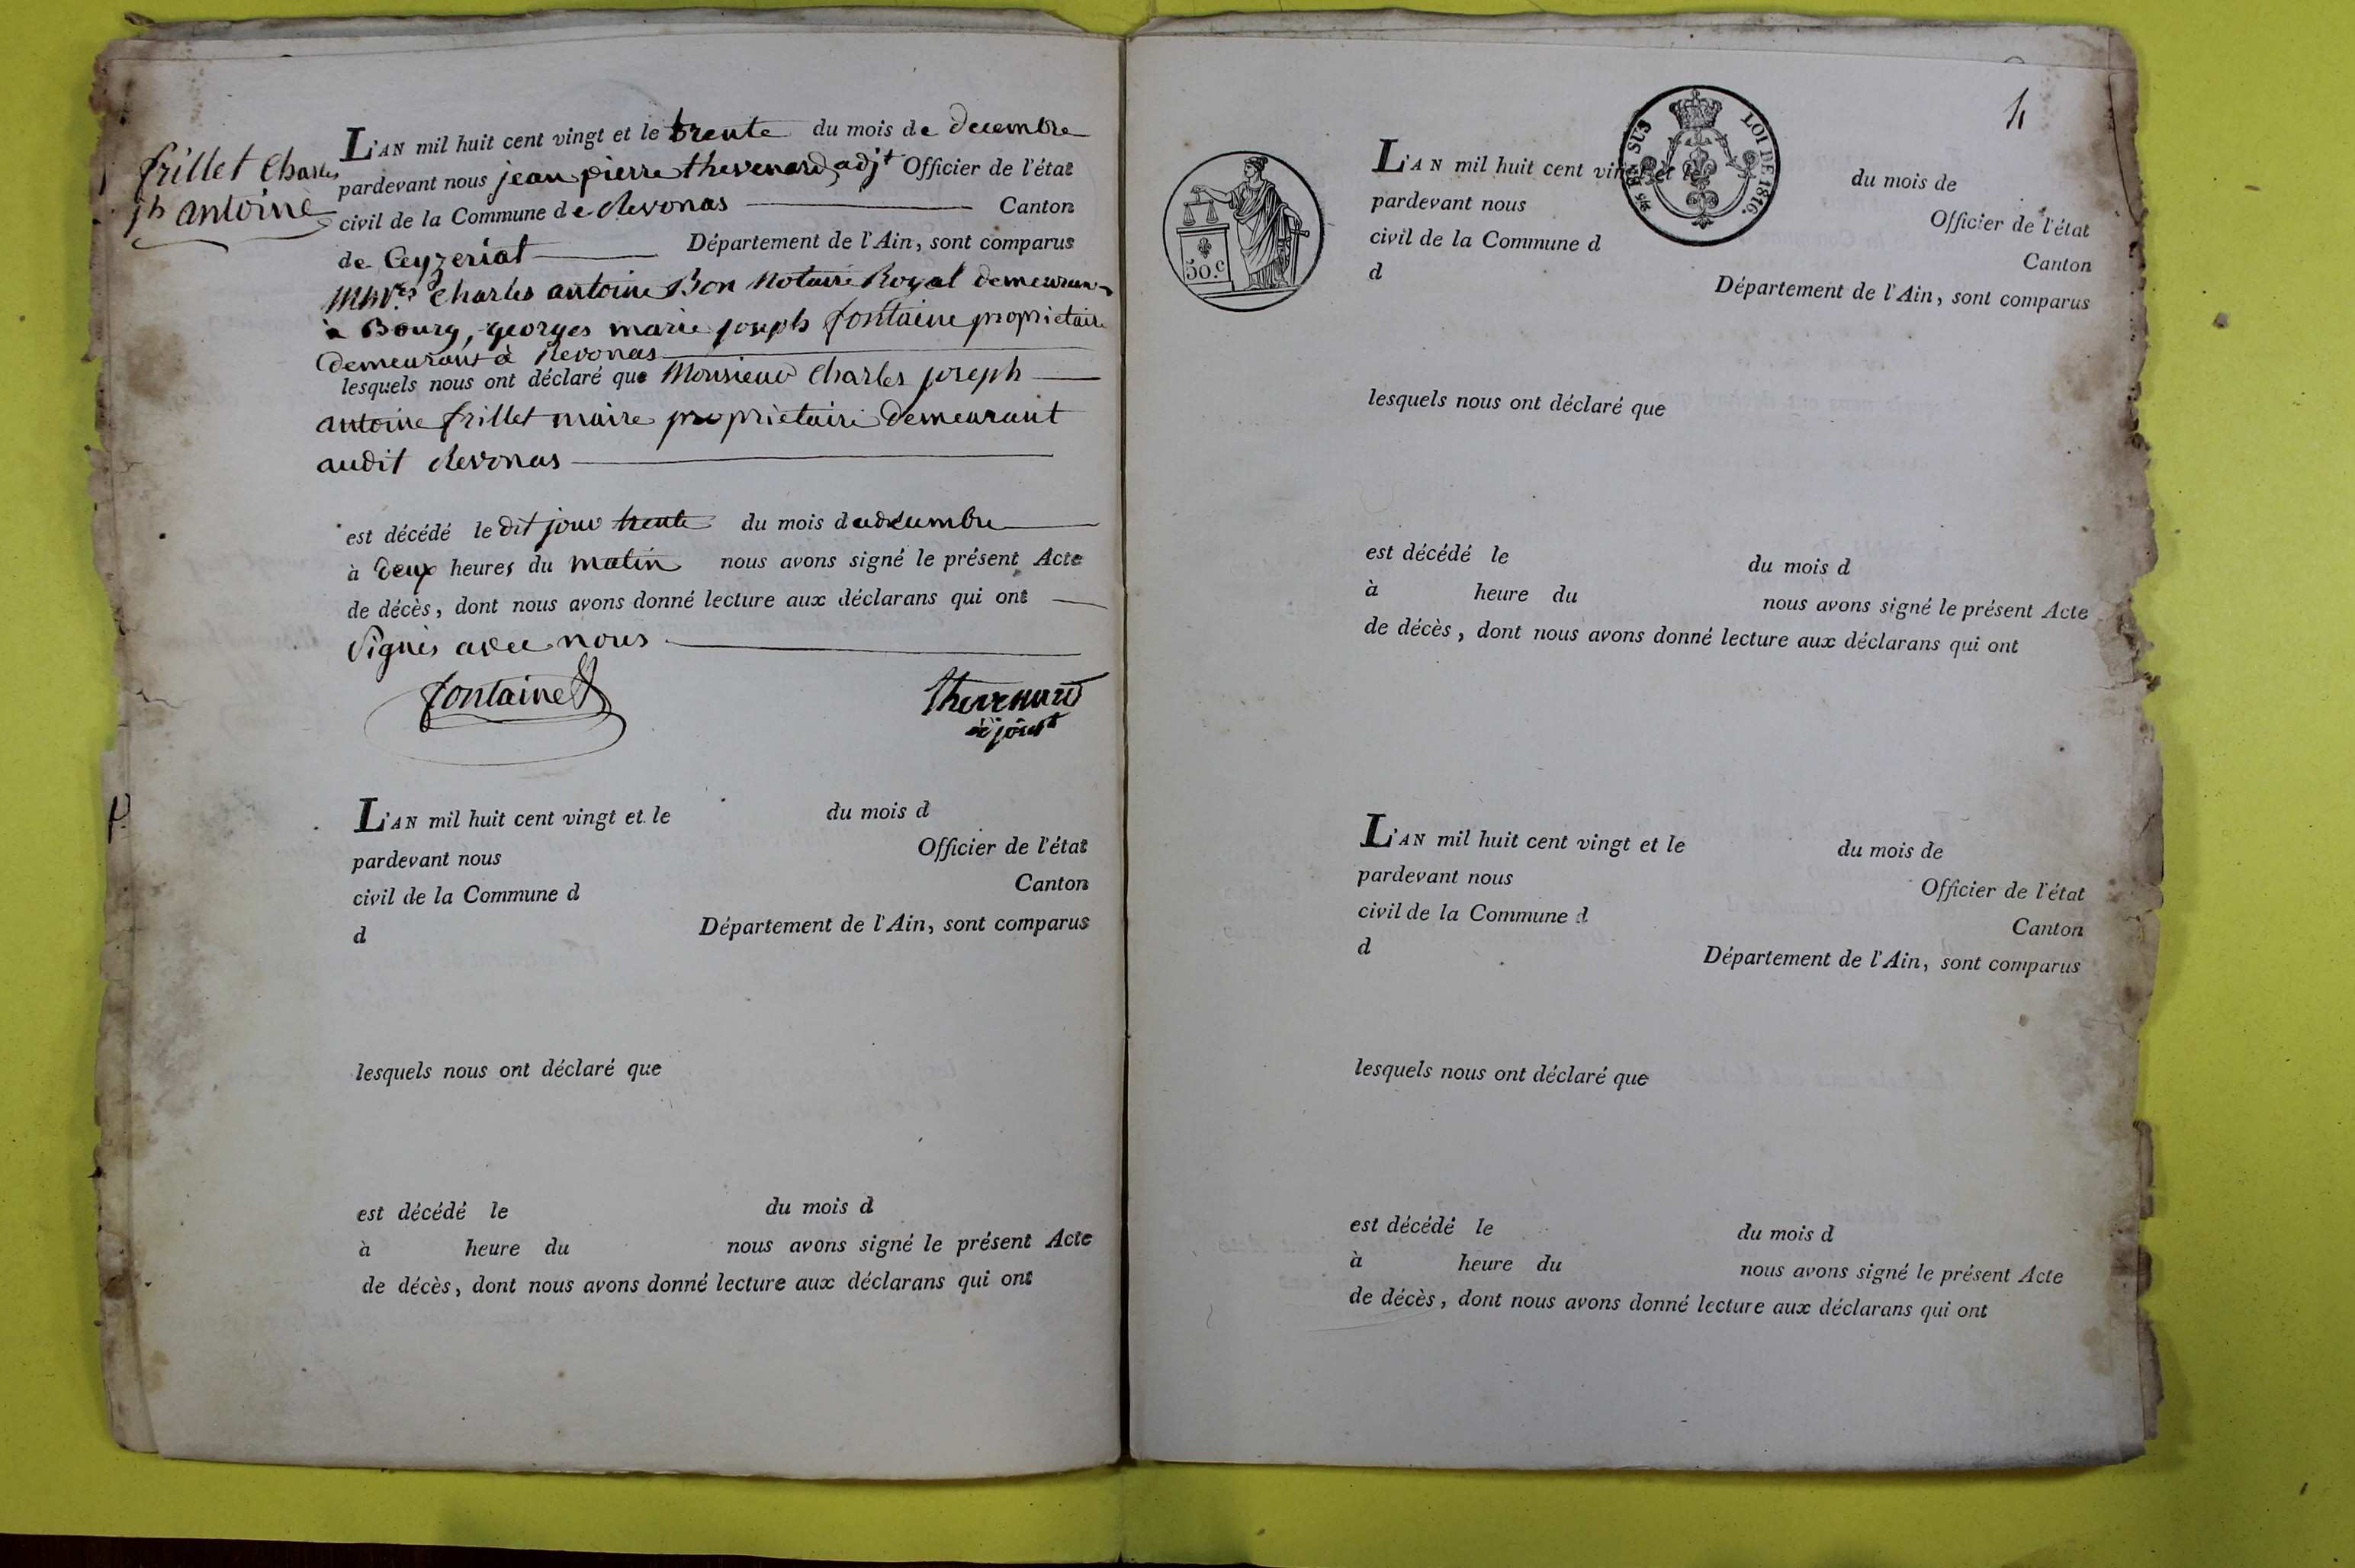 frillet Charles
jh antoine
L'AN mil huit cent vingt et le trente du mois de decembre
pardevant nous jean pierre thevenard adjt Officier de l'état
civil de la Commune de Revonas Canton
de Ceyzeriat Département de l'Ain, sont comparus
Charles antoine Bon Notaire Royal demeurant
à Bourg, georges marie joseph fontaine proprietaire
demeurant à Revonas
lesquels nous ont déclaré que Monsieur Charles joseph
antoine frillet maire proprietaire demeurant
audit Revonas
est décédé le dit jour trente du mois de decembre
à deux heures du matin nous avons signé le présent Acte
de décès, dont nous avons donné lecture aux déclarans qui ont
signés avec nous
fontaine thevenard
adjoint
L'AN mil huit cent vingt et le du mois d
pardevant nous Officier de l'état
civil de la Commune d Canton
d Département de l'Ain, sont comparus
lesquels nous ont déclaré que
est décédé le du mois d
à heure du nous avons signé le présent Acte
de décès, dont nous avons donné lecture aux déclarans qui ont
4
EN SUS LOI DE 1816.
50.c
L'AN mil huit cent vingt et le du mois de
pardevant nous Officier de l'état
civil de la Commune d Canton
d Département de l'Ain, sont comparus
lesquels nous ont déclaré que
est décédé le du mois d
à heure du nous avons signé le présent Acte
de décès, dont nous avons donné lecture aux déclarans qui ont
L'AN mil huit cent vingt et le du mois de
pardevant nous Officier de l'état
civil de la Commune d Canton
d Département de l'Ain, sont comparus
lesquels nous ont déclaré que
est décédé le du mois d
à heure du nous avons signé le présent Acte
de décès, dont nous avons donné lecture aux déclarans qui ont